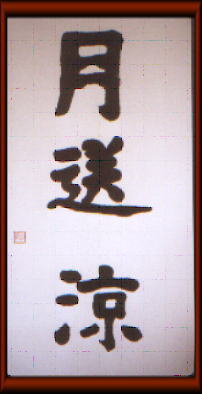 月送涼